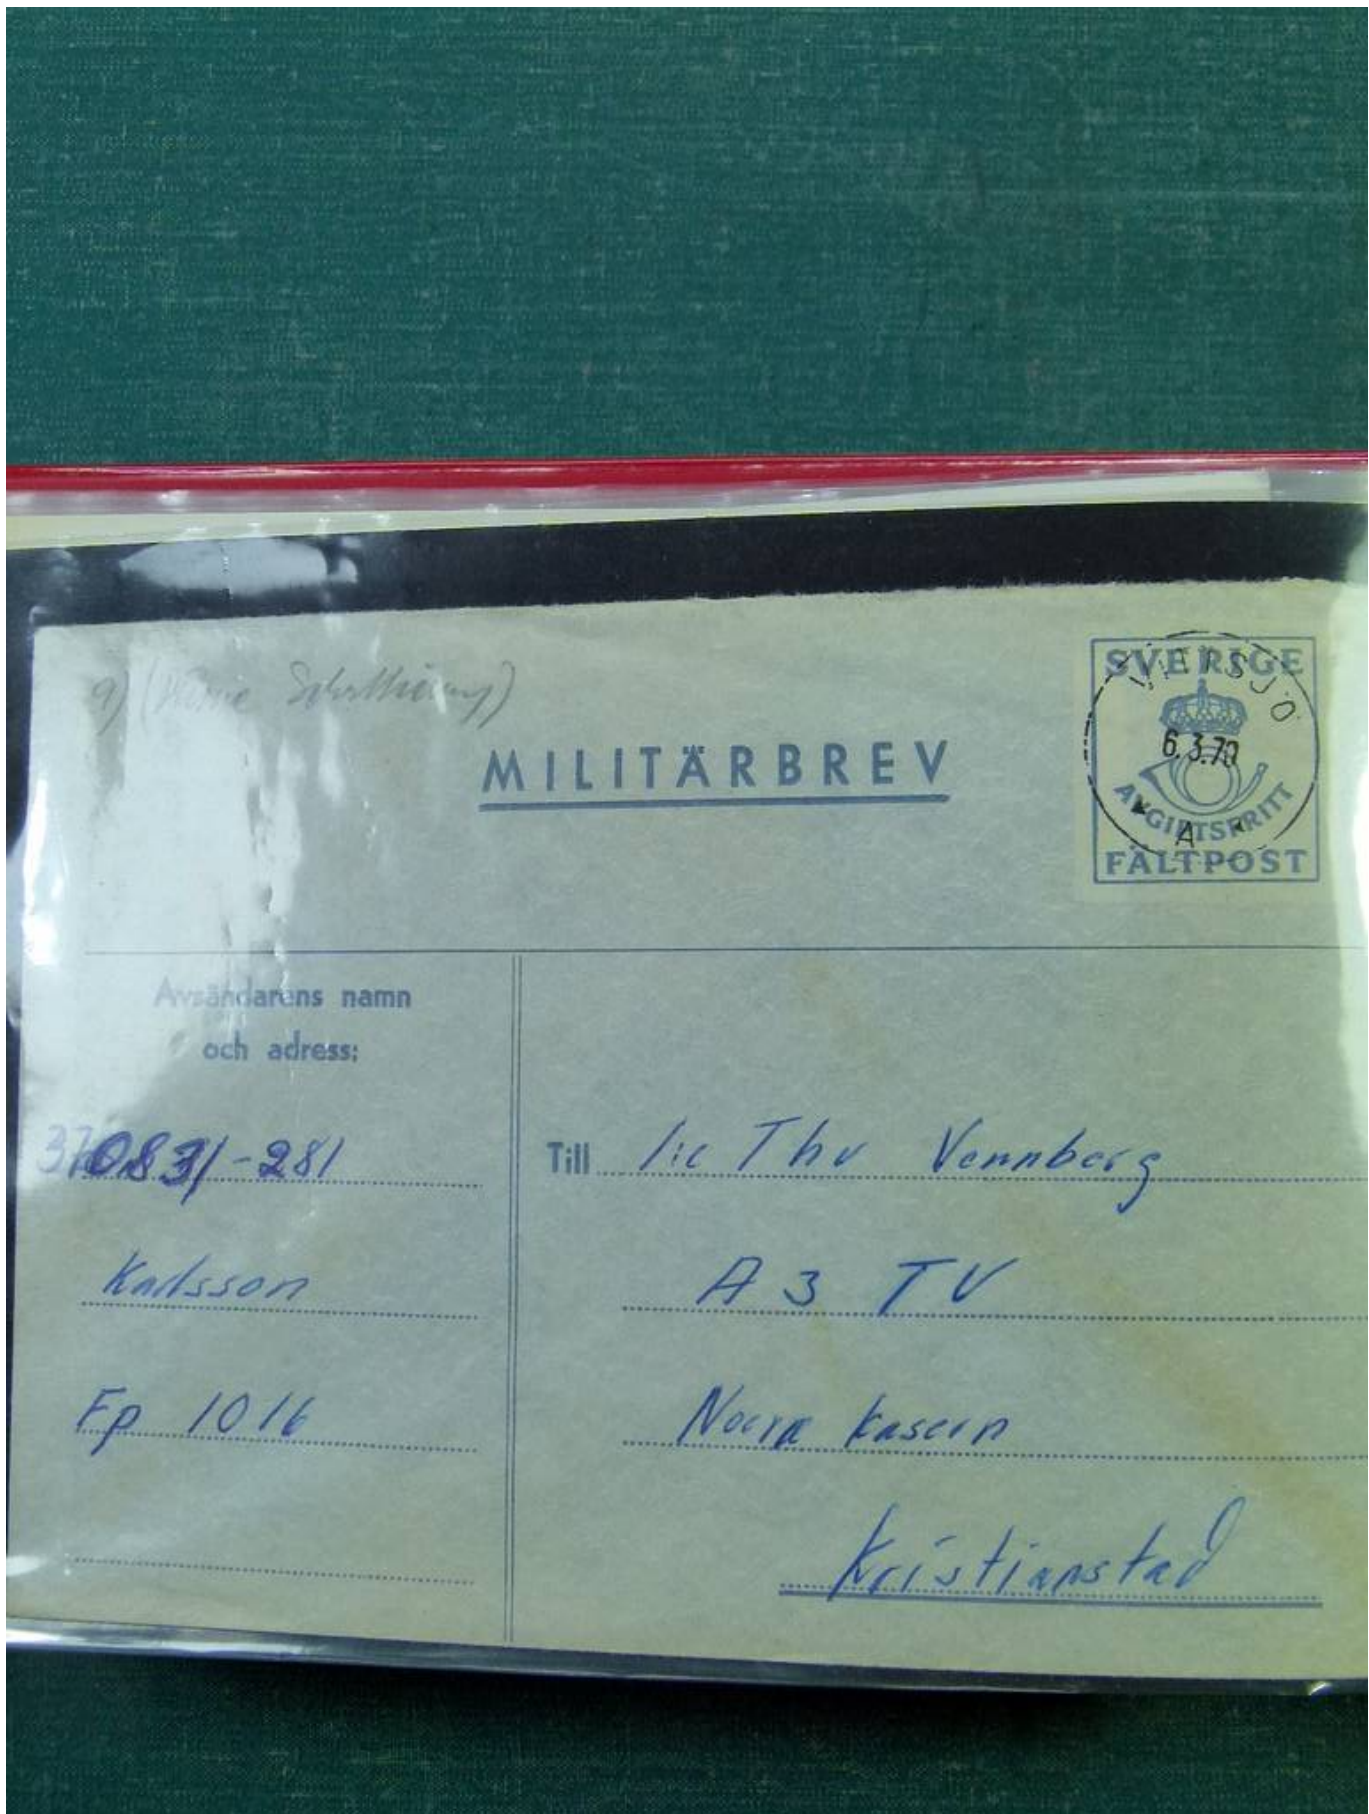 MILITÄRBREV
SVERIGE
6.3.70
AVGIFTSFRITT
A
FÄLTPOST
Avsändarens namn
och adress:
37083/-281
Karlsson
Fp 1016
Till 1:e Thv Vennberg
A 3 TV
Norra Kasern
Kristianstad